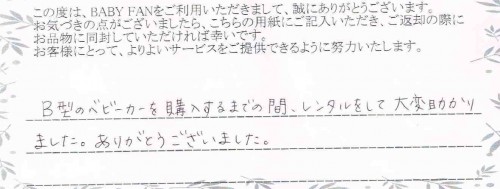 この度は、BABY FANをご利用いただきまして、誠にありがとうございます。
お気づきの点がございましたら、こちらの用紙にご記入いただき、ご返却の際に
お品物に同封していただければ幸いです。
お客様にとって、よりよいサービスをご提供できるように努力いたします。
B型のベビーカーを購入するまでの間、レンタルをして大変助かり
ました。ありがとうございました。